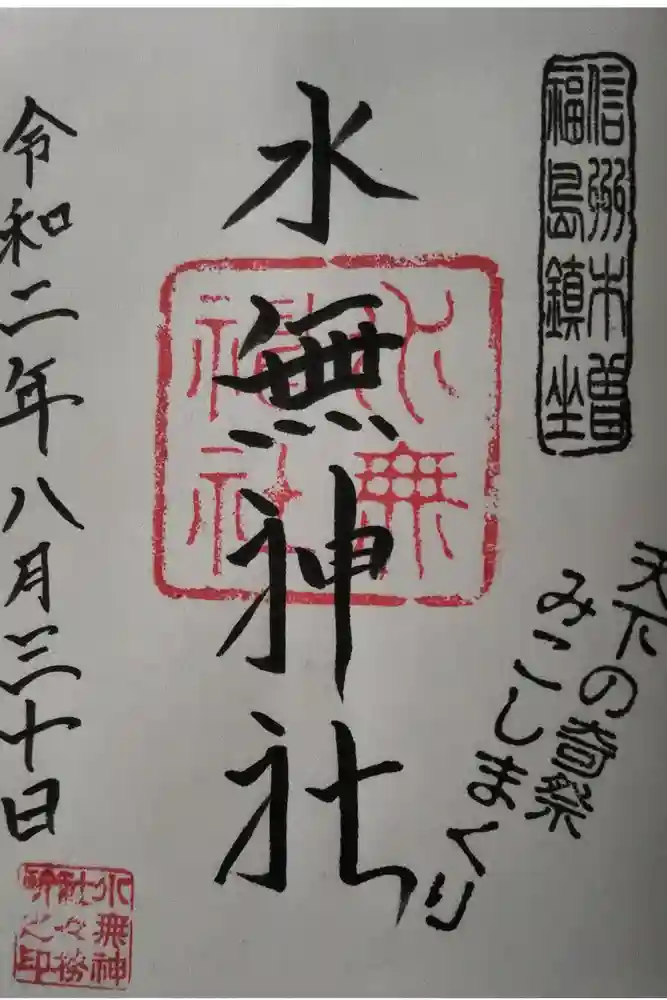 信州木曽
福島鎮坐
天下の奇祭
みこしまくり
水無神社
水無
神社
令和二年八月三十日
水無神
社々務
所之印